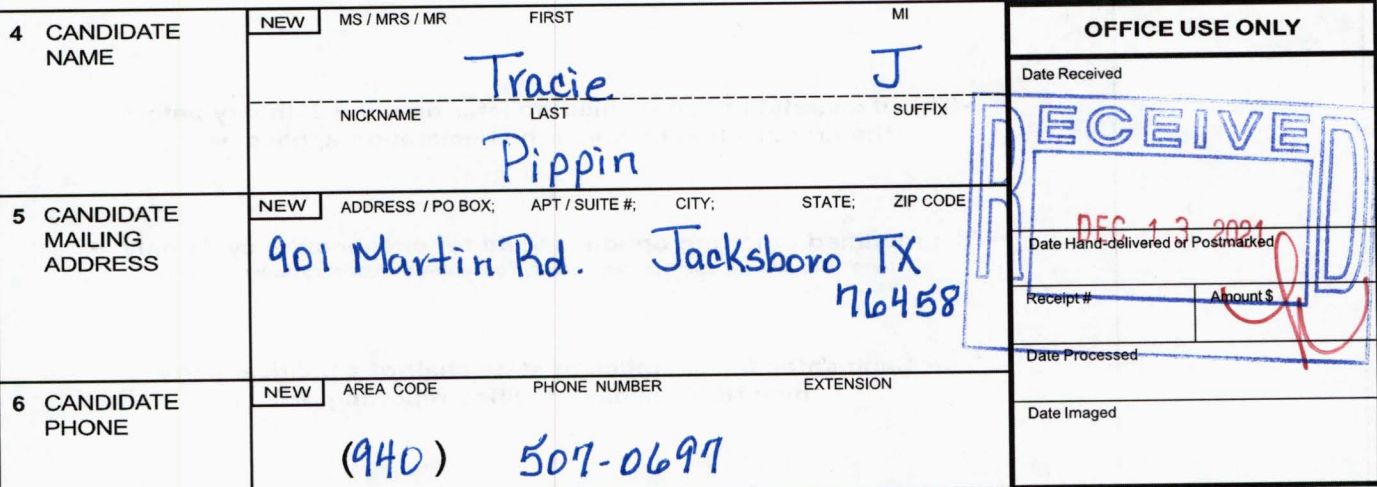 4 CANDIDATE NAME
NEW MS / MRS / MR FIRST MI
Tracie J
NICKNAME LAST SUFFIX
Pippin
5 CANDIDATE MAILING ADDRESS
NEW ADDRESS / PO BOX; APT / SUITE #; CITY; STATE; ZIP CODE
901 Martin Rd. Jacksboro TX
76458
6 CANDIDATE PHONE
NEW AREA CODE PHONE NUMBER EXTENSION
(940) 507-0697
OFFICE USE ONLY
Date Received
RECEIVED
DEC 13 2021
Date Hand-delivered or Postmarked
Receipt # Amount $
Date Processed
Date Imaged